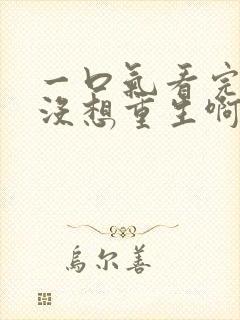 一口氣看完
沒想重生啊
烏尔善